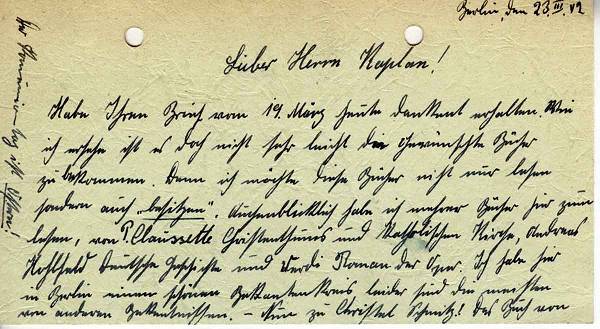 Berlin, den 23.III.42
Lieber Herrn Kaplan!
Habe Ihren Brief vom 19. März heute dankend erhalten. Wie
ich ersehe ist es doch nicht sehr leicht die gewünschte Bücher
zu bekommen. Denn ich möchte diese Bücher nicht nur lesen
sondern auch „besitzen“. Augenblicklich habe ich mehrer Bücher hier zum
lesen, von P. Claussette Christenthums und Katholischen Kirche, Andreas
Hohlfeld Deutsche Geschichte und Verdi Roman der Oper. Ich habe hier
in Berlin einen schönen Bekantenkreis leider sind die meisten
von anderen Bekentnissen. – Nun zu Christel Schmitz! Das Buch von
Der ist Ostern!